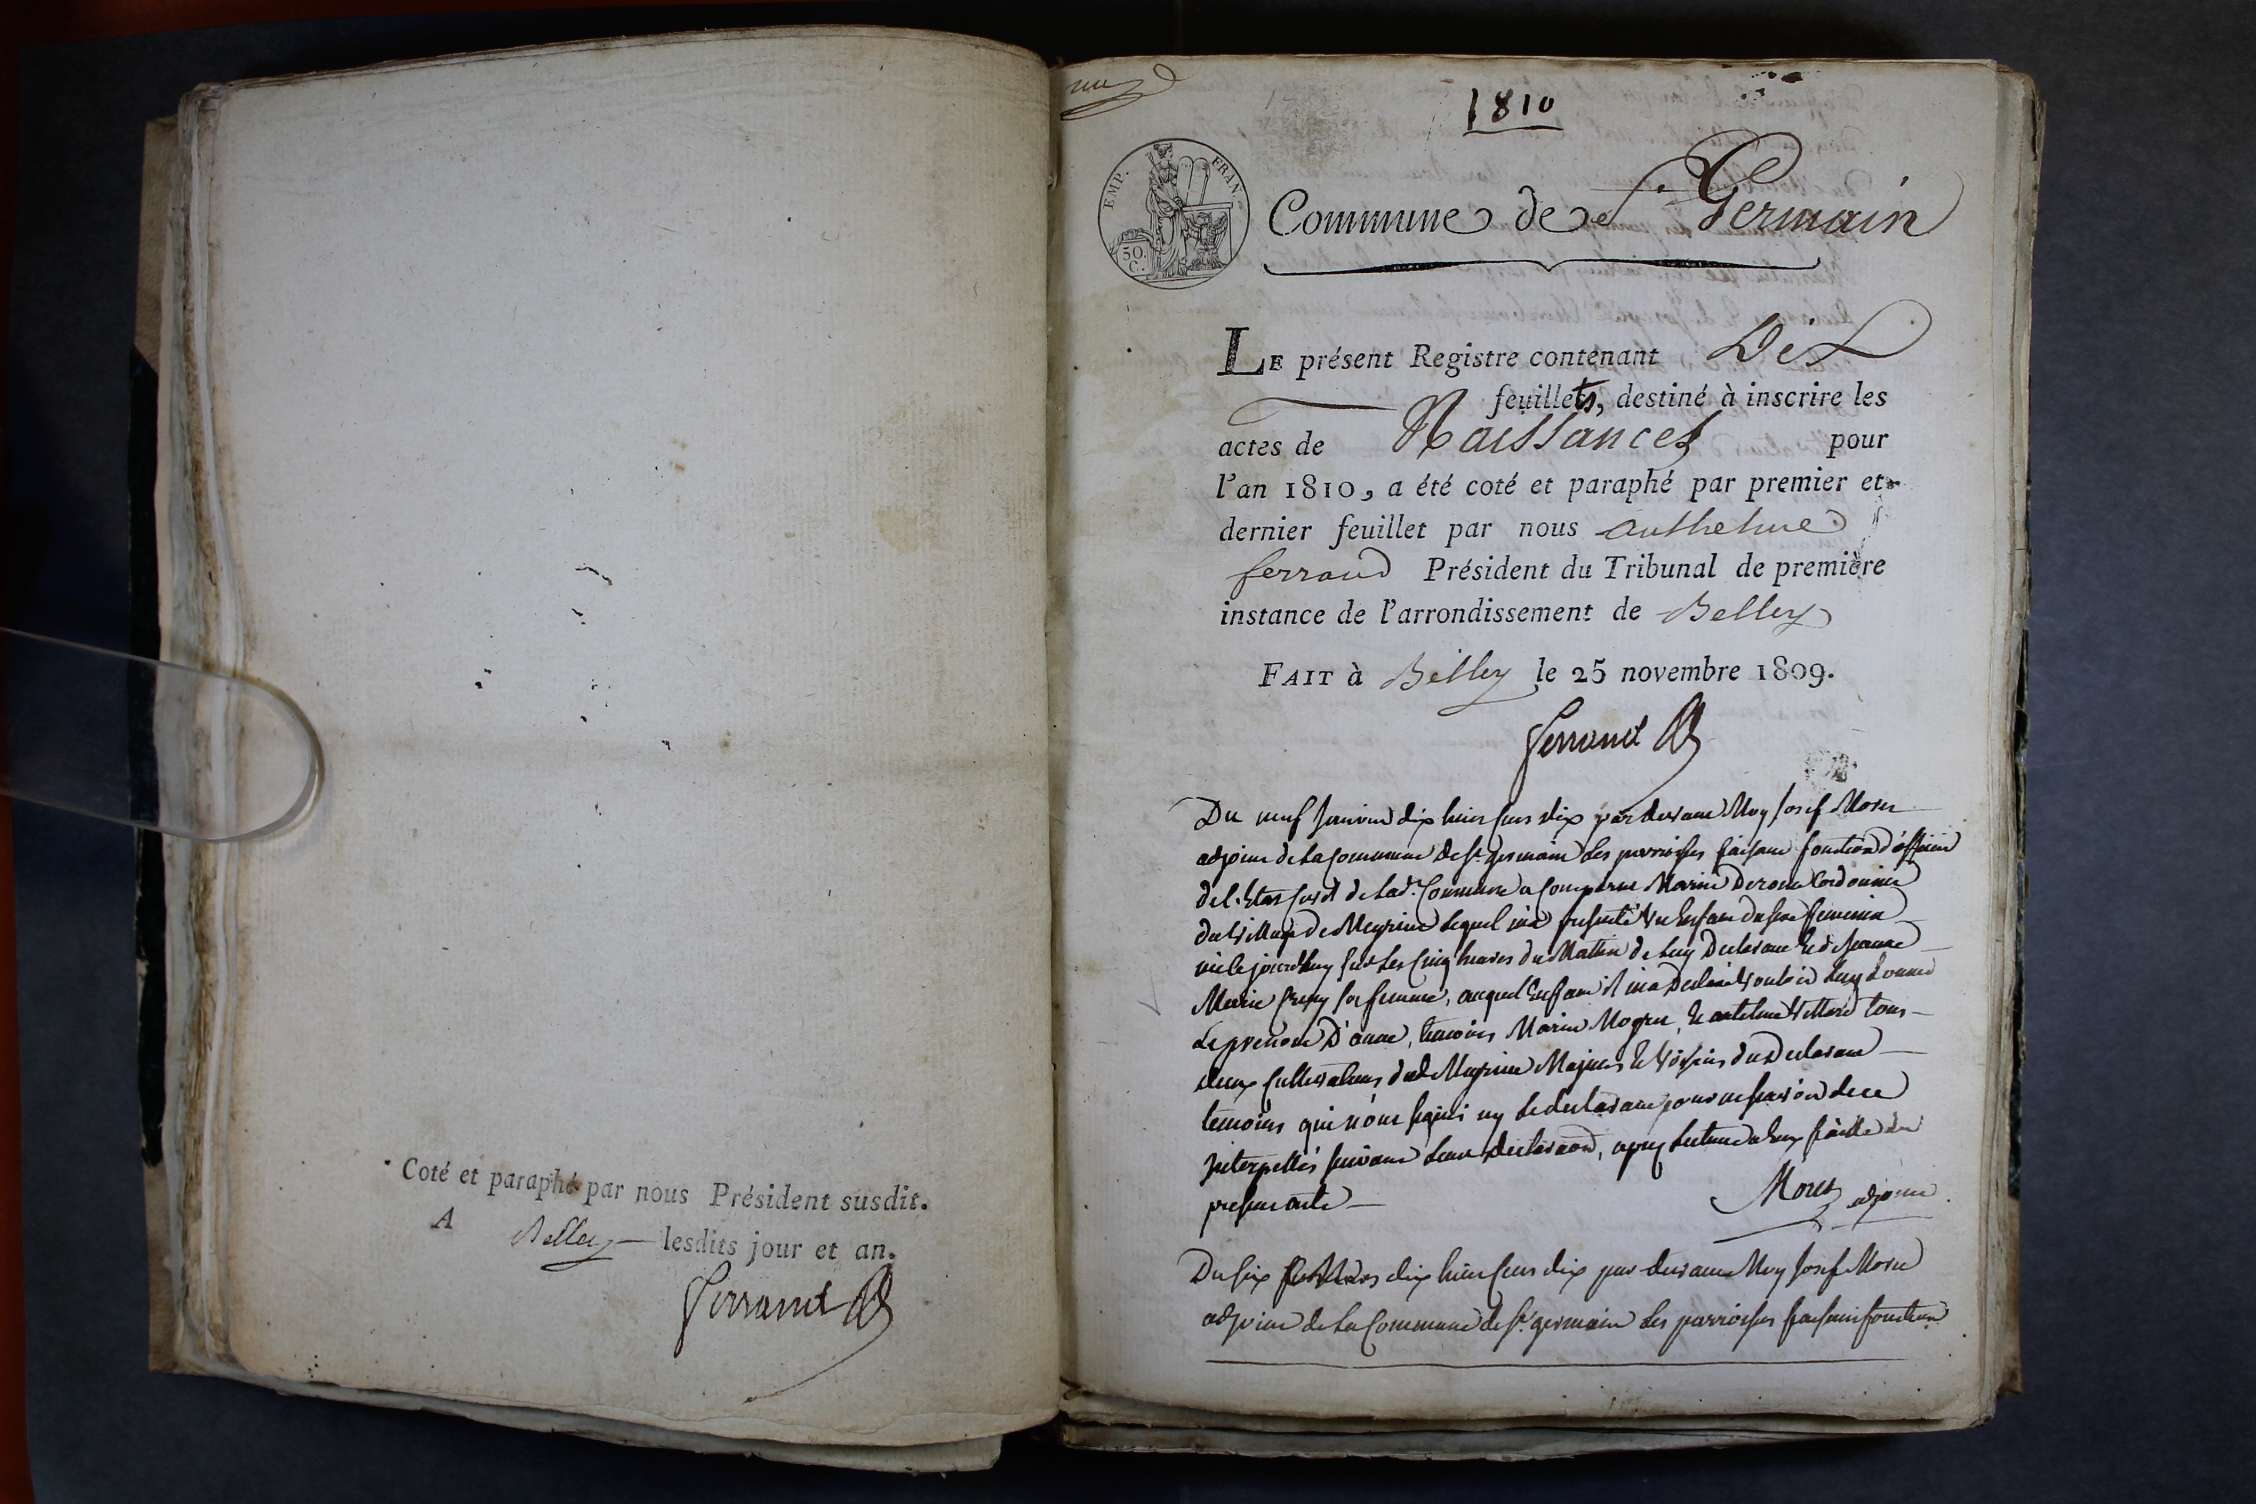 Coté et paraphé par nous Président susdit.
A Belley lesdits jour et an.
Ferrand
1810
EMP. FRAN.
50. C.
Commune de St Germain
LE présent Registre contenant Dix
feuillets, destiné à inscrire les
actes de Naissances pour
l'an 1810, a été coté et paraphé par premier et
dernier feuillet par nous anthelme
ferrand Président du Tribunal de première
instance de l'arrondissement de Belley
FAIT à Belley le 25 novembre 1809.
Ferrand
Du neuf Janvier dix huit cens dix par devant Moy Josef Moret
adjoint de la Commune de St germain les parroisses faisant fonction d'officier
de l'Etat Civil de lad. Commune a comparu Marin Cordonnier
du Village de Meyrieu lequel m'a presenté Un Enfant du sexe feminin
né le jourdhuy sur les Cinq heures du Mattin de luy Declarant Et de Jeanne
Marie sa femme, auquel Enfant il m'a Declaré Vouloir luy donner
le prenom D'anne, temoins Marin Et antelme tous
deux Cultivateurs dud Meyrieu Majeurs Et Voisins du Declarant
temoins qui n'ont signé ny le declarant pour ne savoir de ce
Interpellés suivant leur declaraon, apres lecture a Eux faitte du
present acte
Moret adjoint
Du six dix huit cens dix par devant Moy Josef Moret
adjoint de la Commune de St germain les parroisses faisant fonction